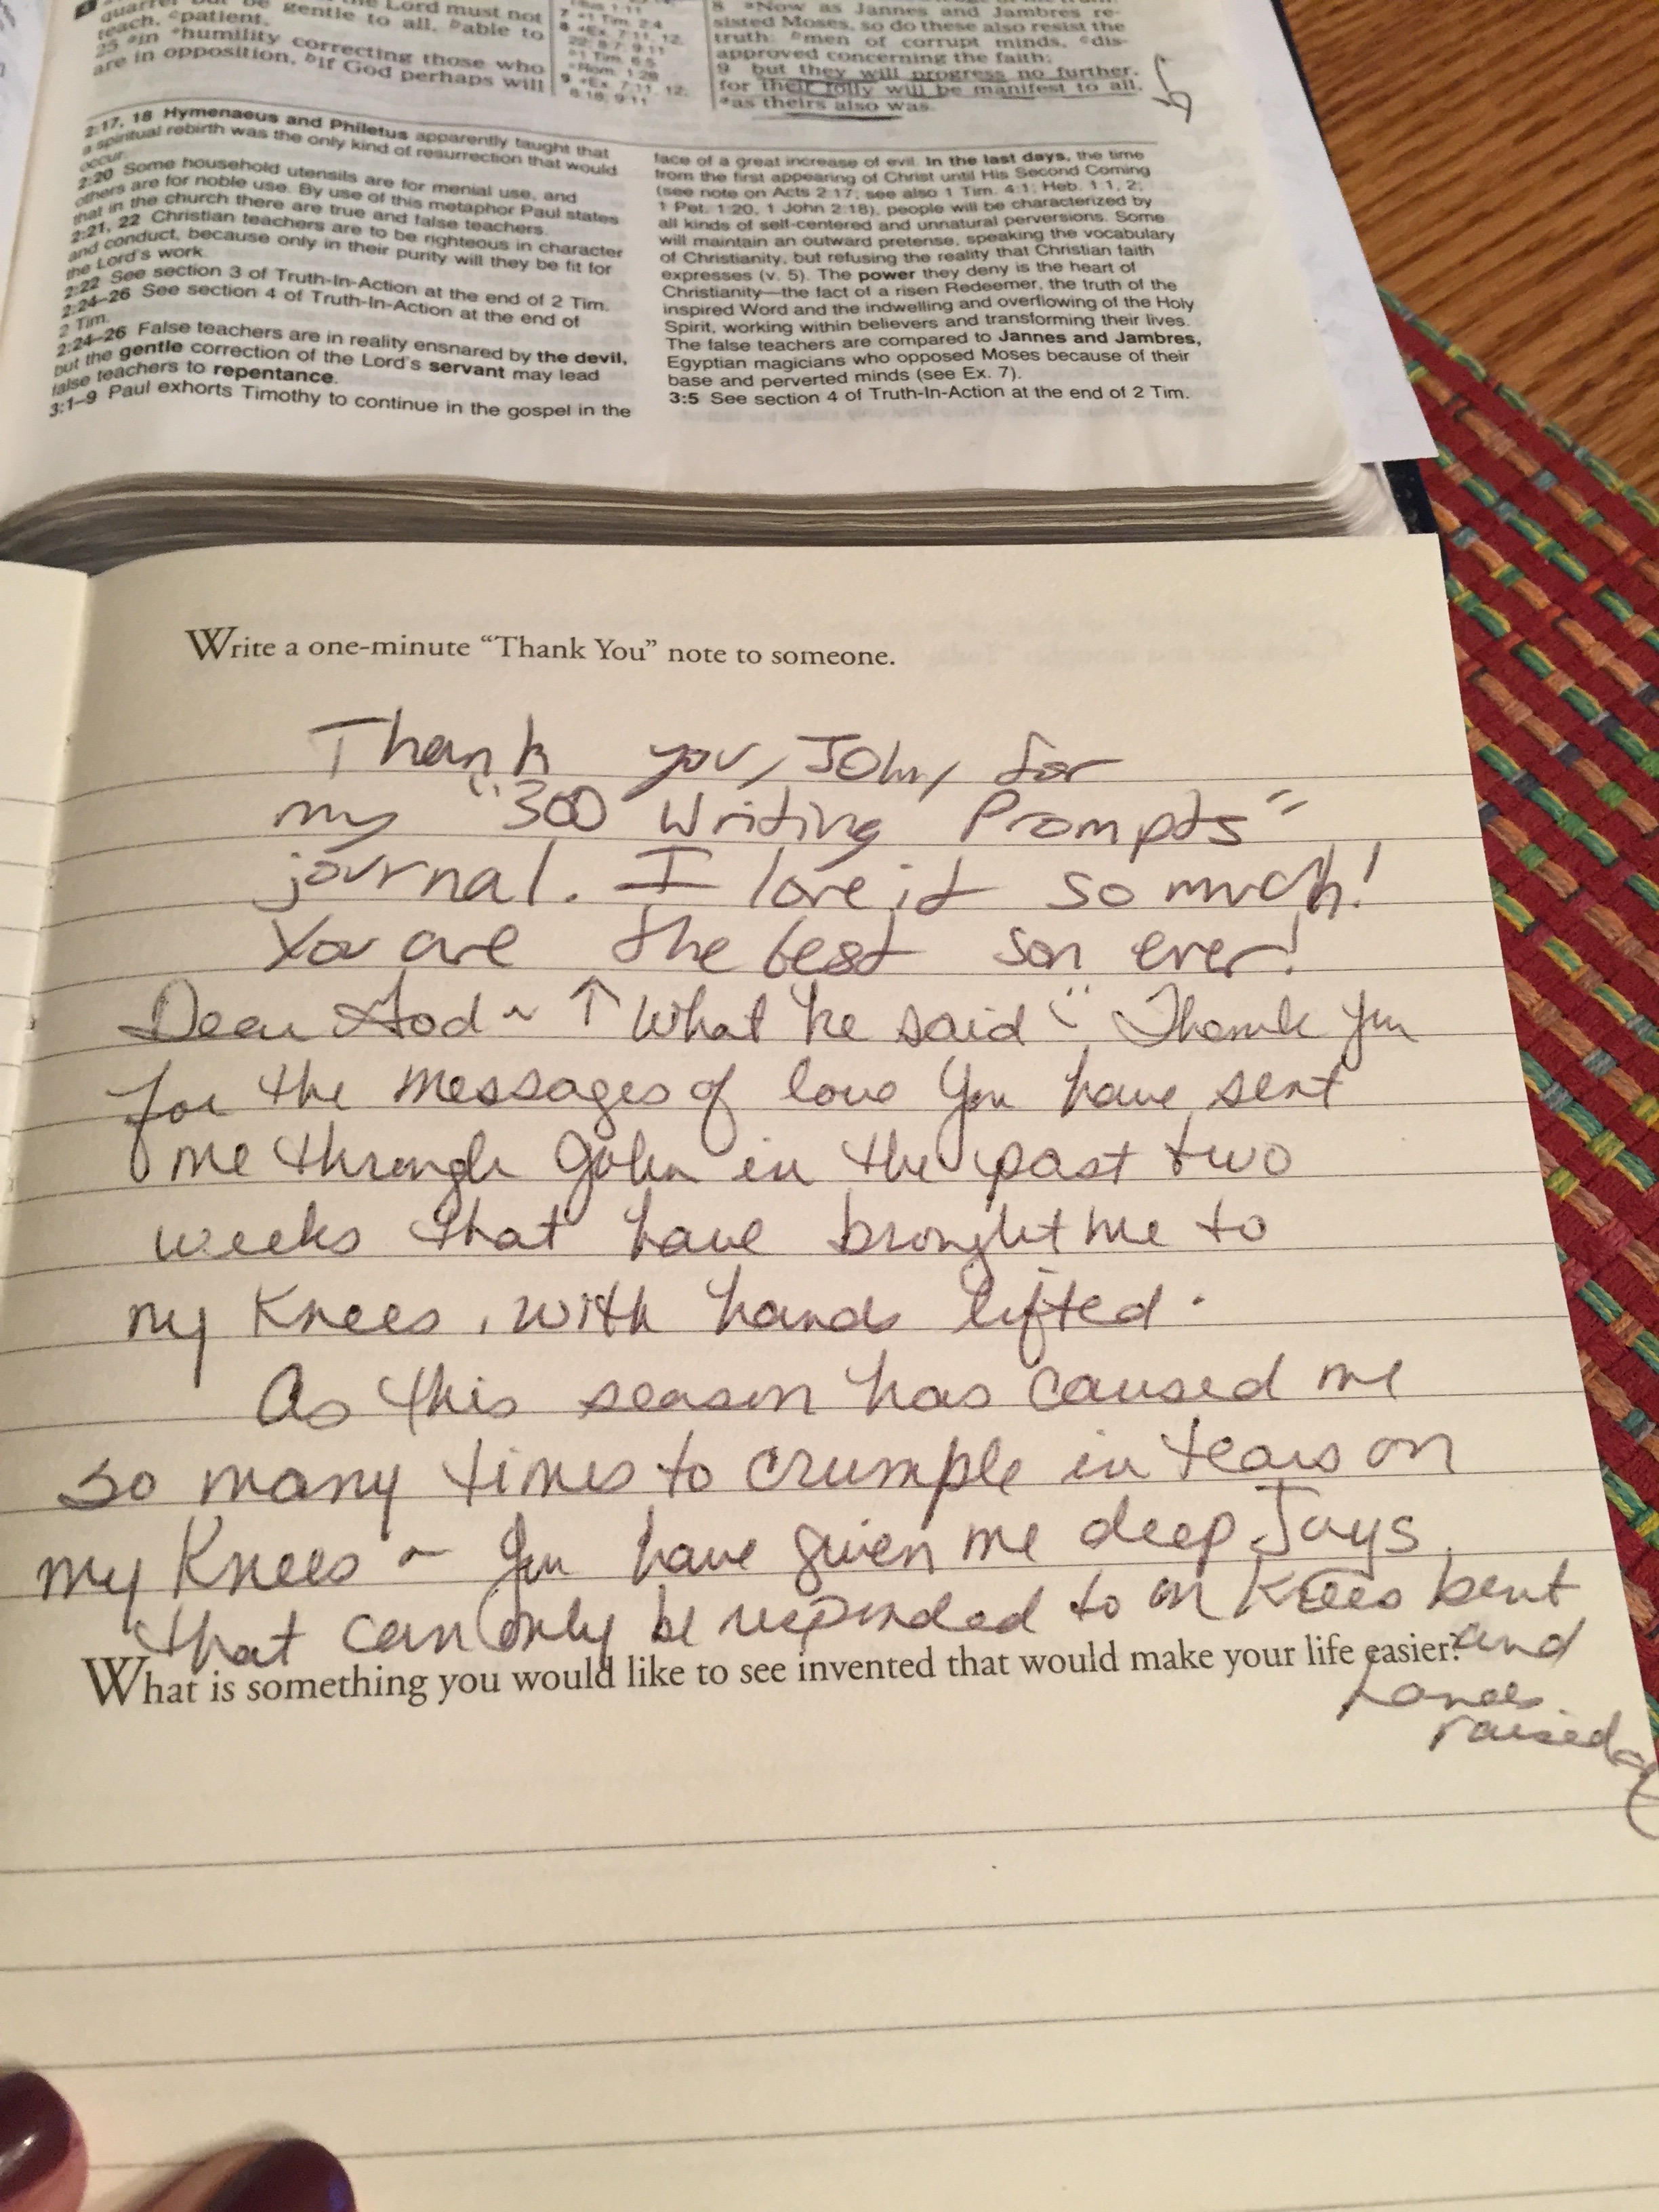 quarrel but be gentle to all, ᵇable to
teach, ᶜpatient,
25 ᵃin ᵃhumility correcting those who
are in opposition, ᵇif God perhaps will
7 ᵃ1 Tim. 2:4
8 ᵃEx. 7:11, 12,
22; 8:7; 9:11
ᵇ1 Tim. 6:5
ᶜRom. 1:28
9 ᵃEx. 7:11, 12;
8:18; 9:11
8 ᵃNow as Jannes and Jambres re-
sisted Moses, so do these also resist the
truth: ᵇmen of corrupt minds, ᶜdis-
approved concerning the faith;
9 but they will progress no further,
for their folly will be manifest to all,
ᵃas theirs also was.
2:17, 18 Hymenaeus and Philetus apparently taught that
a spiritual rebirth was the only kind of resurrection that would
occur.
2:20 Some household utensils are for menial use, and
others are for noble use. By use of this metaphor Paul states
that in the church there are true and false teachers.
2:21, 22 Christian teachers are to be righteous in character
and conduct, because only in their purity will they be fit for
the Lord's work.
2:22 See section 3 of Truth-In-Action at the end of 2 Tim.
2:24–26 See section 4 of Truth-In-Action at the end of
2 Tim.
2:24–26 False teachers are in reality ensnared by the devil,
but the gentle correction of the Lord's servant may lead
false teachers to repentance.
3:1–9 Paul exhorts Timothy to continue in the gospel in the
face of a great increase of evil. In the last days, the time
from the first appearing of Christ until His Second Coming
(see note on Acts 2:17; see also 1 Tim. 4:1; Heb. 1:1, 2;
1 Pet. 1:20, 1 John 2:18), people will be characterized by
all kinds of self-centered and unnatural perversions. Some
will maintain an outward pretense, speaking the vocabulary
of Christianity, but refusing the reality that Christian faith
expresses (v. 5). The power they deny is the heart of
Christianity—the fact of a risen Redeemer, the truth of the
inspired Word and the indwelling and overflowing of the Holy
Spirit, working within believers and transforming their lives.
The false teachers are compared to Jannes and Jambres,
Egyptian magicians who opposed Moses because of their
base and perverted minds (see Ex. 7).
3:5 See section 4 of Truth-In-Action at the end of 2 Tim.
Write a one-minute “Thank You” note to someone.
Thank you, John, for
my "300 Writing Prompts"
journal. I love it so much!
You are the best son ever!
Dear God ~ ↑ What he said Thank You
for the messages of love You have sent
me through John in the past two
weeks that have brought me to
my Knees, with hands lifted.
As this season has caused me
so many times to crumple in tears on
my Knees ~ You have given me deep Joys
that can only be responded to on Knees bent
and
hands
raised
What is something you would like to see invented that would make your life easier?